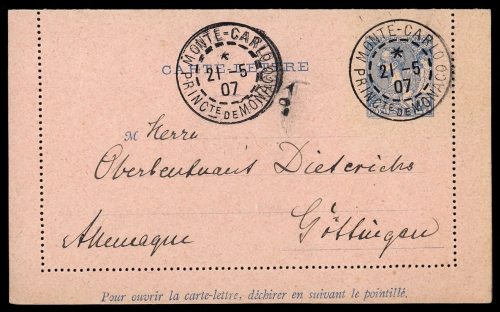 CARTE-LETTRE
MONTE-CARLO
21 -5
07
PRINCTE DE MONACO
MONTE-CARLO
21 -5
07
PRINCTE DE MONACO
M Herrn
Oberleutnant Dieterichs
Göttingen
Allemagne
Pour ouvrir la carte-lettre, déchirer en suivant le pointillé.